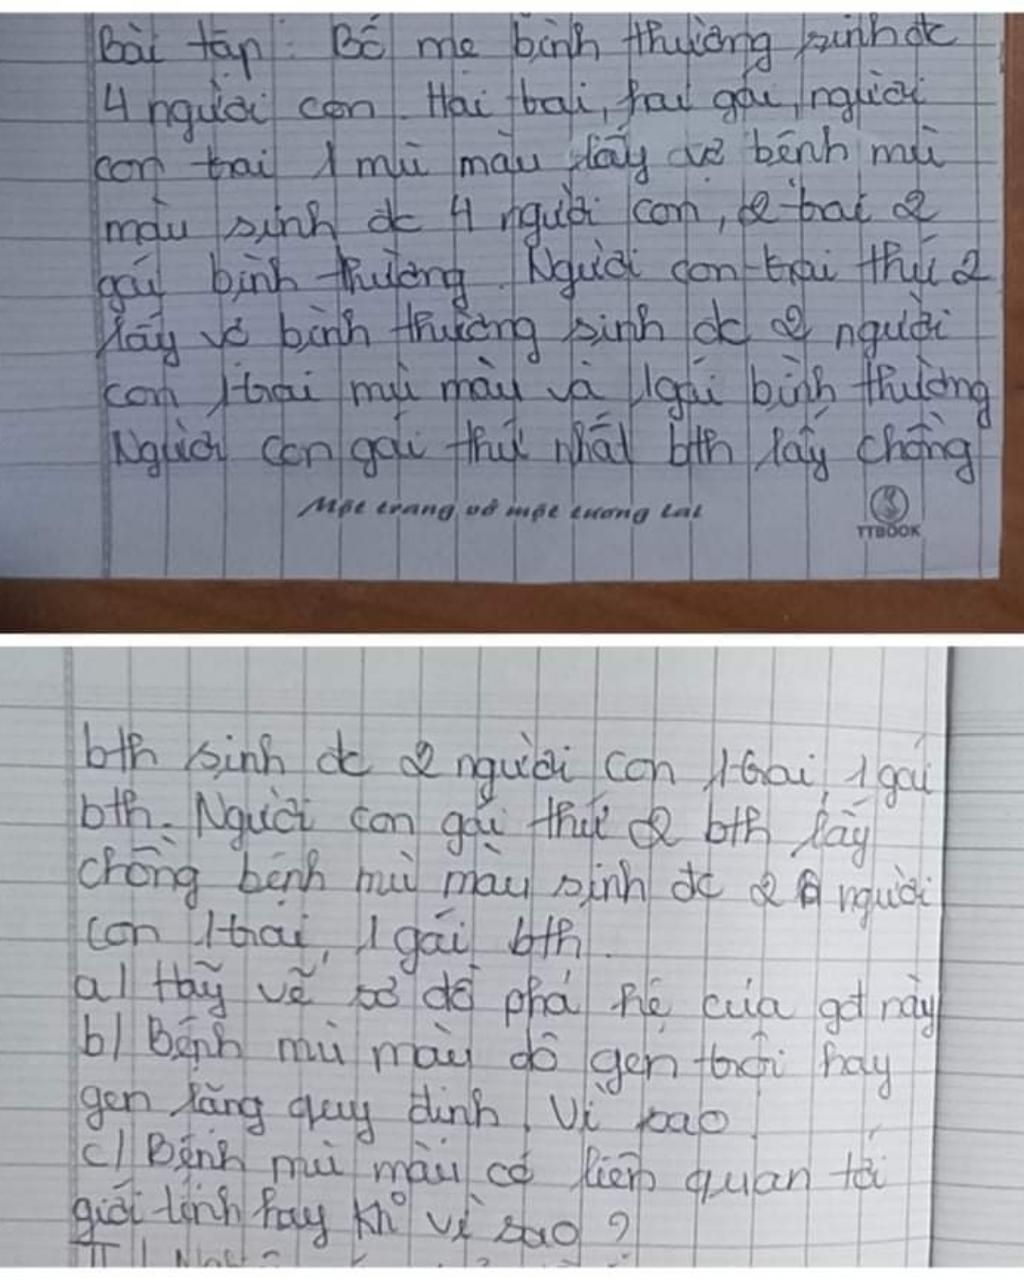 Bài tập: Bố mẹ bình thường sinh đc
4 người con. Hai trai, hai gái, người
con trai 1 mù màu lấy vợ bệnh mù
màu sinh đc 4 người con, 2 trai 2
gái bình thường. Người con trai thứ 2
lấy vợ bình thường sinh đc 2 người
con 1 trai mù màu và 1 gái bình thường
Người con gái thứ nhất bth lấy chồng
Một trang vở một tương lai
TTBOOK
bth sinh đc 2 người con 1 trai, 1 gái
bth. Người con gái thứ 2 bth lấy
chồng bệnh mù màu sinh đc 2 người
con 1 trai, 1 gái bth.
a) Hãy vẽ sơ đồ phả hệ của gđ này
b) Bệnh mù màu do gen trội hay
gen lặng quy định. Vì sao
c) Bệnh mù màu có liên quan tới
giới tính hay kho vì sao?